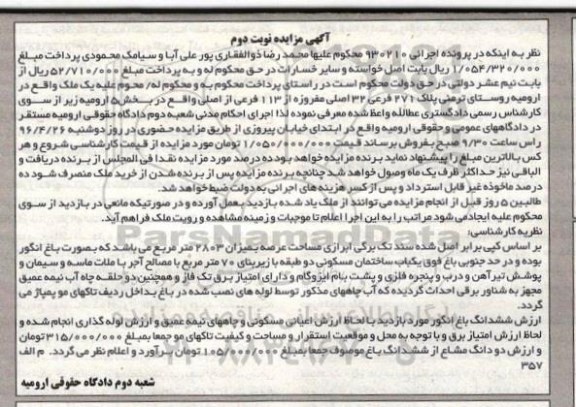 آگهی مزایده نوبت دوم
نظر به اینکه در پرونده اجرائی ۹۳۰۲۱۰ محکوم علیها محمد رضا ذوالفقاری پور علی آبا و سیامک محمودی پرداخت مبلغ
۱/۰۵۴/۳۲۰/۰۰۰ ریال بابت اصل خواسته و سایر خسارات در حق محکوم له و به پرداخت مبلغ ۵۲/۷۱۰/۰۰۰ ریال از
بابت نیم عشر دولتی در حق دولت محکوم است در راستای پرداخت محکوم به و محکوم له/ محکوم علیه یک ملک واقع در
ارومیه روستای ترمنی پلاک ۲۷۱ فرعی ۳۲ اصلی مفروزه از ۱۱۳ فرعی از اصلی واقع در بخش ۵ ارومیه زیر از سوی
کارشناس رسمی دادگستری عطااله واعظ شده معرفی نموده لذا اجرای احکام مدنی شعبه دوم دادگاه حقوقی ارومیه مستقر
در دادگاههای عمومی و حقوقی ارومیه واقع در ابتدای خیابان پیروزی از طریق مزایده حضوری در روز دوشنبه ۹۶/۴/۲۶
راس ساعت ۹/۳۰ صبح بفروش برساند قیمت ۱/۰۵۰/۰۰۰/۰۰۰ تومان مورد مزایده از قیمت کارشناسی شروع و هر
کس بالاترین مبلغ را پیشنهاد نماید برنده مزایده خواهد بود ده درصد مورد مزایده نقدا فی المجلس از برنده دریافت و
الباقی نیز حداکثر ظرف یک ماه وصول خواهد شد چنانچه برنده مزایده پس از برنده شدن از خرید ملک منصرف شود ده
درصد ماخوذه غیر قابل استرداد و پس از کسر هزینه های اجرائی به دولت ضبط خواهد شد.
طالبین ۵ روز قبل از انجام مزایده می توانند از ملک یاد شده بازدید بعمل آورده و در صورتیکه مانعی در بازدید از سوی
محکوم علیه ایجاد می شود مراتب را به این اجرا اعلام تا موجبات و زمینه مشاهده و رویت ملک فراهم آید.
نظریه کارشناسی:
بر اساس کپی برابر اصل شده سند تک برگی ابرازی مساحت عرصه بمیزان ۲۸۰۳ متر مربع می باشد که بصورت باغ انگور
بوده و در حد جنوبی باغ فوق یکباب ساختمان مسکونی دو طبقه با زیربنای ۷۰ متر مربع با مصالح آجر با ملات ماسه و سیمان و
پوشش تیرآهن و درب و پنجره فلزی و پشت بام ایزوگام و دارای امتیاز برق تک فاز و همچنین دو حلقه چاه آب نیمه عمیق
مجهز به شناور برقی احداث گردیده که آب چاههای مذکور توسط لوله های نصب شده در باغ بداخل ردیف تاکهای مو پمپاژ می
گردد.
ارزش ششدانگ باغ انگور مورد بازدید با لحاظ ارزش اعیانی مسکونی و چاههای نیمه عمیق و ارزش لوله گذاری انجام شده و
لحاظ ارزش امتیاز برق و با توجه به محل و موقعیت استقرار و مساحت و کیفیت تاکهای مو جمعا بمبلغ ۳۱۵/۰۰۰/۰۰۰ تومان
و ارزش دو دانگ مشاع از ششدانگ باغ موصوف جمعا بمبلغ ۱۰۵/۰۰۰/۰۰۰ تومان برآورد و اعلام نظر می گردد. م الف
۳۵۷
شعبه دوم دادگاه حقوقی ارومیه
ParsNamadData